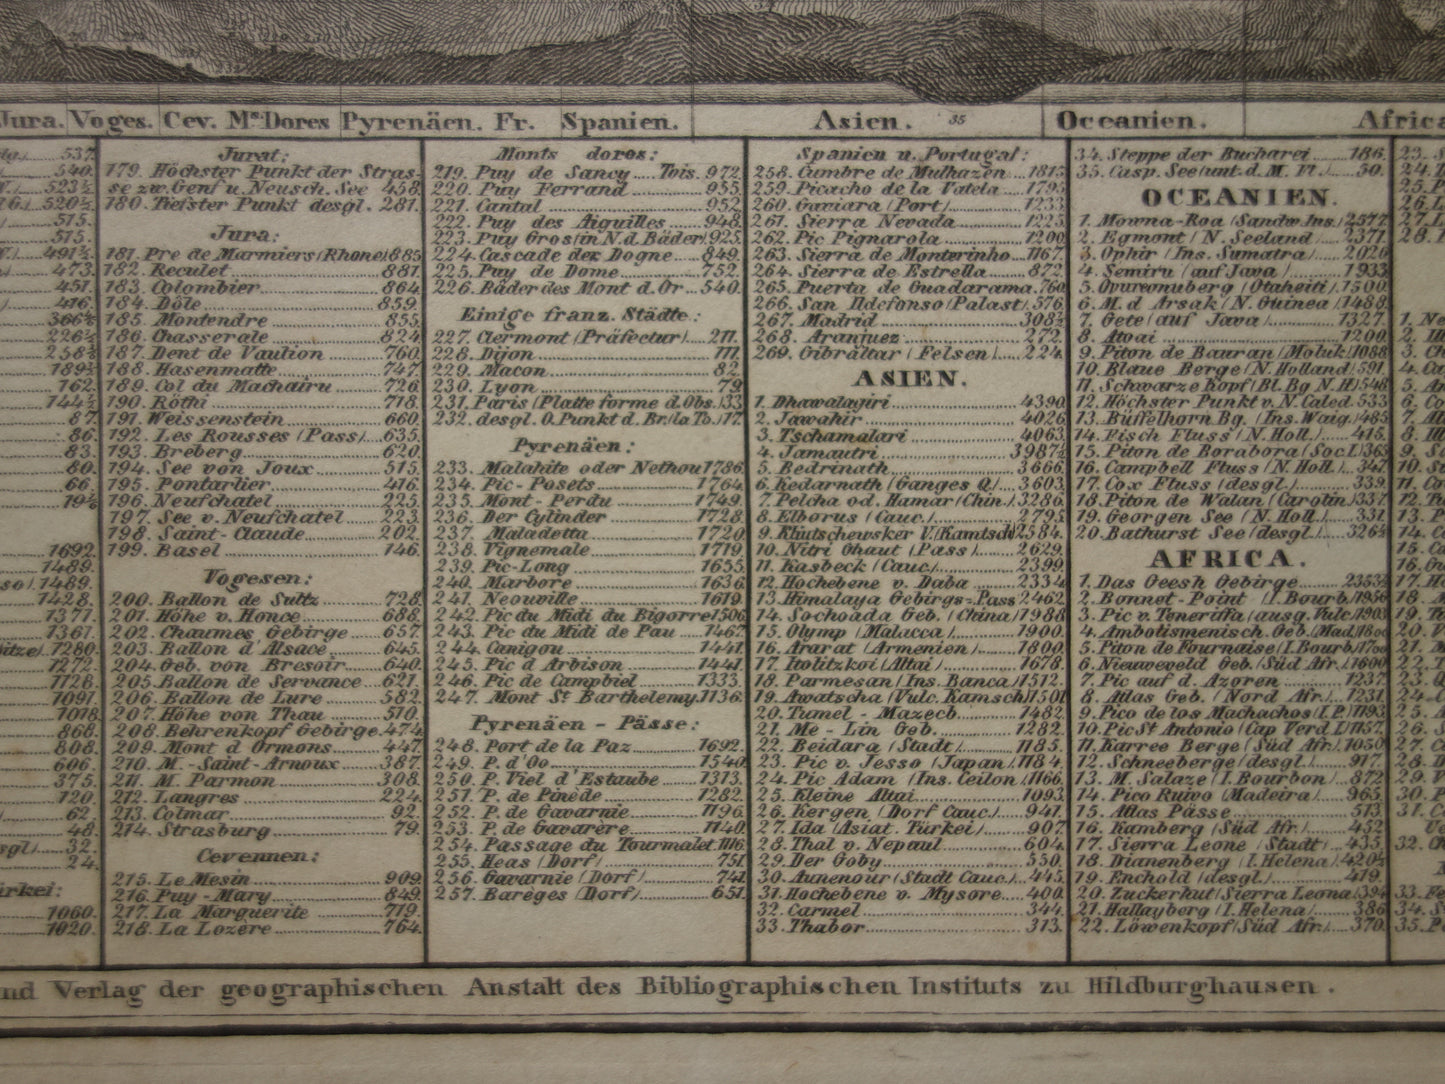 Jura. Voges. Cev. Mts Dores Pyrenäen. Fr. Spanien. Asien. 35 Oceanien. Africa
537.
540.
523½
520½
515.
515.
491½
473.
451.
416.
366½
226½
258¾
189½
162.
144½
87.
86.
83.
80.
66.
19½
1692.
1489.
1489.
1428.
1371.
1361.
1280.
1272.
1128.
1091.
1018.
868.
808.
606.
375.
120.
62.
48.
32.
24.
1060.
1020.
Jurat:
179. Höchster Punkt der Stras-
se zw. Genf u. Neusch. See 458.
180. Tiefster Punkt desgl. 281.
Jura:
181. Pre de Marmiers (Rhone) 885.
182. Reculet 881.
183. Colombier 864.
184. Dôle 859.
185. Montendre 855.
186. Chasserale 824.
187. Dent de Vaulion 760.
188. Hasenmatte 747.
189. Col du Machairu 726.
190. Röthi 718.
191. Weissenstein 660.
192. Les Rousses (Pass) 635.
193. Breberg 620.
194. See von Joux 515.
195. Pontarlier 416.
196. Neufchatel 225.
197. See v. Neufchatel 223.
198. Saint-Claude 202.
199. Basel 146.
Vogesen:
200. Ballon de Sultz 728.
201. Höhe v. Honce 688.
202. Chaumes Gebirge 657.
203. Ballon d'Alsace 645.
204. Geb. von Bresoir 640.
205. Ballon de Servance 621.
206. Ballon de Lure 582.
207. Höhe von Thau 510.
208. Behrenkopf Gebirge 474.
209. Mont d Ormons 447.
210. M.-Saint-Arnoux 387.
211. M. Parmon 308.
212. Langres 224.
213. Colmar 92.
214. Strasburg 79.
Cevennen:
215. Le Mesin 909.
216. Puy-Mary 849.
217. La Marguerite 779.
218. La Lozère 764.
Monts dores:
219. Puy de Sancy Tois. 972.
220. Puy Ferrand 955.
221. Cantal 952.
222. Puy des Aiguilles 948.
223. Puy Gros (in N. d. Bäder) 925.
224. Cascade dex Dogne 849.
225. Puy de Dome 752.
226. Bäder des Mont d. Or 540.
Einige franz. Städte:
227. Clermont (Präfectur) 211.
228. Dijon 111.
229. Macon 82.
230. Lyon 79.
231. Paris (Platte forme d. Obs.) 33.
232. desgl. O. Punkt d. Br. (la To.) 17.
Pyrenäen:
233. Malahite oder Nethou 1786.
234. Pic-Posets 1764.
235. Mont-Perdu 1749.
236. Der Cylinder 1728.
237. Maladetta 1720.
238. Vignemale 1719.
239. Pic-Long 1655.
240. Marbore 1636.
241. Neouville 1619.
242. Pic du Midi du Bigorre 1506.
243. Pic du Midi de Pau 1467.
244. Canigou 1441.
245. Pic d'Arbison 1441.
246. Pic de Campbiel 1333.
247. Mont St. Barthelemy 1136.
Pyrenäen - Pässe:
248. Port de la Paz 1692.
249. P. d'Oo 1540.
250. P. Viel d'Estaube 1313.
251. P. de Pinède 1282.
252. P. de Gavarnie 1196.
253. P. de Gavarère 1140.
254. Passage du Tourmalet 1116.
255. Heas (Dorf) 751.
256. Gavarnie (Dorf) 741.
257. Bareges (Dorf) 651.
Spanien u. Portugal:
258. Cumbre de Mulhazen 1815.
259. Picacho de la Valeta 1795.
260. Gaviara (Port) 1233.
261. Sierra Nevada 1225.
262. Pic Pignarola 1200.
263. Sierra de Montarinho 1167.
264. Sierra de Estrella 872.
265. Puerta de Guadarama 760.
266. San Ildefonso (Palast) 576.
267. Madrid 308½
268. Aranjuez 272.
269. Gibraltar (Felsen) 224.
ASIEN.
1. Dhawalagiri 4390.
2. Jawahir 4026.
3. Tschamalari 4063.
4. Jamautri 3987½
5. Bedrinath 3666.
6. Kedarnath (Ganges Q.) 3603.
7. Pelcha od. Hamar (Chin.) 3286.
8. Elborus (Cauc.) 2795.
9. Kliutschewsker V. (Kamtsch) 2584.
10. Nitri Ghaut (Pass) 2629.
11. Kasbeck (Cauc.) 2399.
12. Hochebene v. Daba 2334.
13. Himalaya Gebirgs-Pass 2462.
14. Sochoada Geb. (China) 1988.
15. Olymp (Malacca) 1900.
16. Ararat (Armenien) 1800.
17. Itolitzkoi (Altai) 1678.
18. Parmesan (Ins. Banca) 1512.
19. Awatscha (Vulc. Kamsch) 1501.
20. Tumel-Mazecb 1482.
21. Me-Lin Geb. 1282.
22. Beidara (Stadt) 1185.
23. Pic v. Jesso (Japan) 1184.
24. Pic Adam (Ins. Ceilon) 1166.
25. Kleine Altai 1093.
26. Kergen (Dorf Cauc.) 941.
27. Ida (Asiat. Türkei) 907.
28. Thal v. Nepaul 604.
29. Der Goby 550.
30. Aunenour (Stadt Cauc.) 445.
31. Hochebene v. Mysore 400.
32. Carmel 344.
33. Thabor 313.
34. Steppe der Bucharei 186.
35. Casp. See (unt. d. M. Fl.) 50.
OCEANIEN.
1. Mowna-Roa (Sandw. Ins.) 2577.
2. Egmont (N. Seeland) 2371.
3. Ophir (Ins. Sumatra) 2026.
4. Semiru (auf Java) 1933.
5. Ovureonuberg (Otaheiti) 1500.
6. M. d Arsak (N. Guinea) 1488.
7. Gete (auf Java) 1327.
8. Awai 1200.
9. Piton de Bauran (Moluk) 1088.
10. Blaue Berge (N. Holland) 591.
11. Schwarze Kopf (Bl. Bg N. H) 548.
12. Höchster Punkt v. N. Caled. 533.
13. Büffelhorn Bg. (Ins. Waig.) 485.
14. Fisch Fluss (N. Holl.) 415.
15. Piton de Borabora (Soc. I.) 365.
16. Campbell Fluss (N. Holl.) 347.
17. Cox Fluss (desgl.) 339.
18. Piton de Walan (Carolin.) 337.
19. Georgen See (N. Holl.) 331.
20. Bathurst See (desgl.) 326½
AFRICA.
1. Das Geesh Gebirge 2353½
2. Bonnet-Point (I. Bourb.) 1956
3. Pic v. Teneriffa (ausg. Vulc.) 1903
4. Ambotismenisch. Geb. (Mad.) 1800
5. Piton de Fournaise (I. Bourb.) 1700
6. Nieuweveld Geb. (Süd Afr.) 1600
7. Pic auf d. Azoren 1237.
8. Atlas Geb. (Nord Afr.) 1231.
9. Pico de los Machachos (I. P.) 1193.
10. Pic St Antonio (Cap Verd I.) 1157.
11. Karree Berge (Süd Afr.) 1050
12. Schneeberge (desgl.) 917.
13. M. Salaze (I. Bourbon) 872
14. Pico Ruivo (Madeira) 965.
15. Atlas Pässe 513.
16. Kamberg (Süd Afr.) 452
17. Sierra Leone (Stadt) 435.
18. Dianenberg (I. Helena) 420½
19. Enchold (desgl.) 419.
20. Zuckerhut (Sierra Leona) 394
21. Hallayberg (I. Helena) 386
22. Löwenkopf (Süd Afr.) 370.
nd Verlag der geographischen Anstalt des Bibliographischen Instituts zu Hildburghausen.